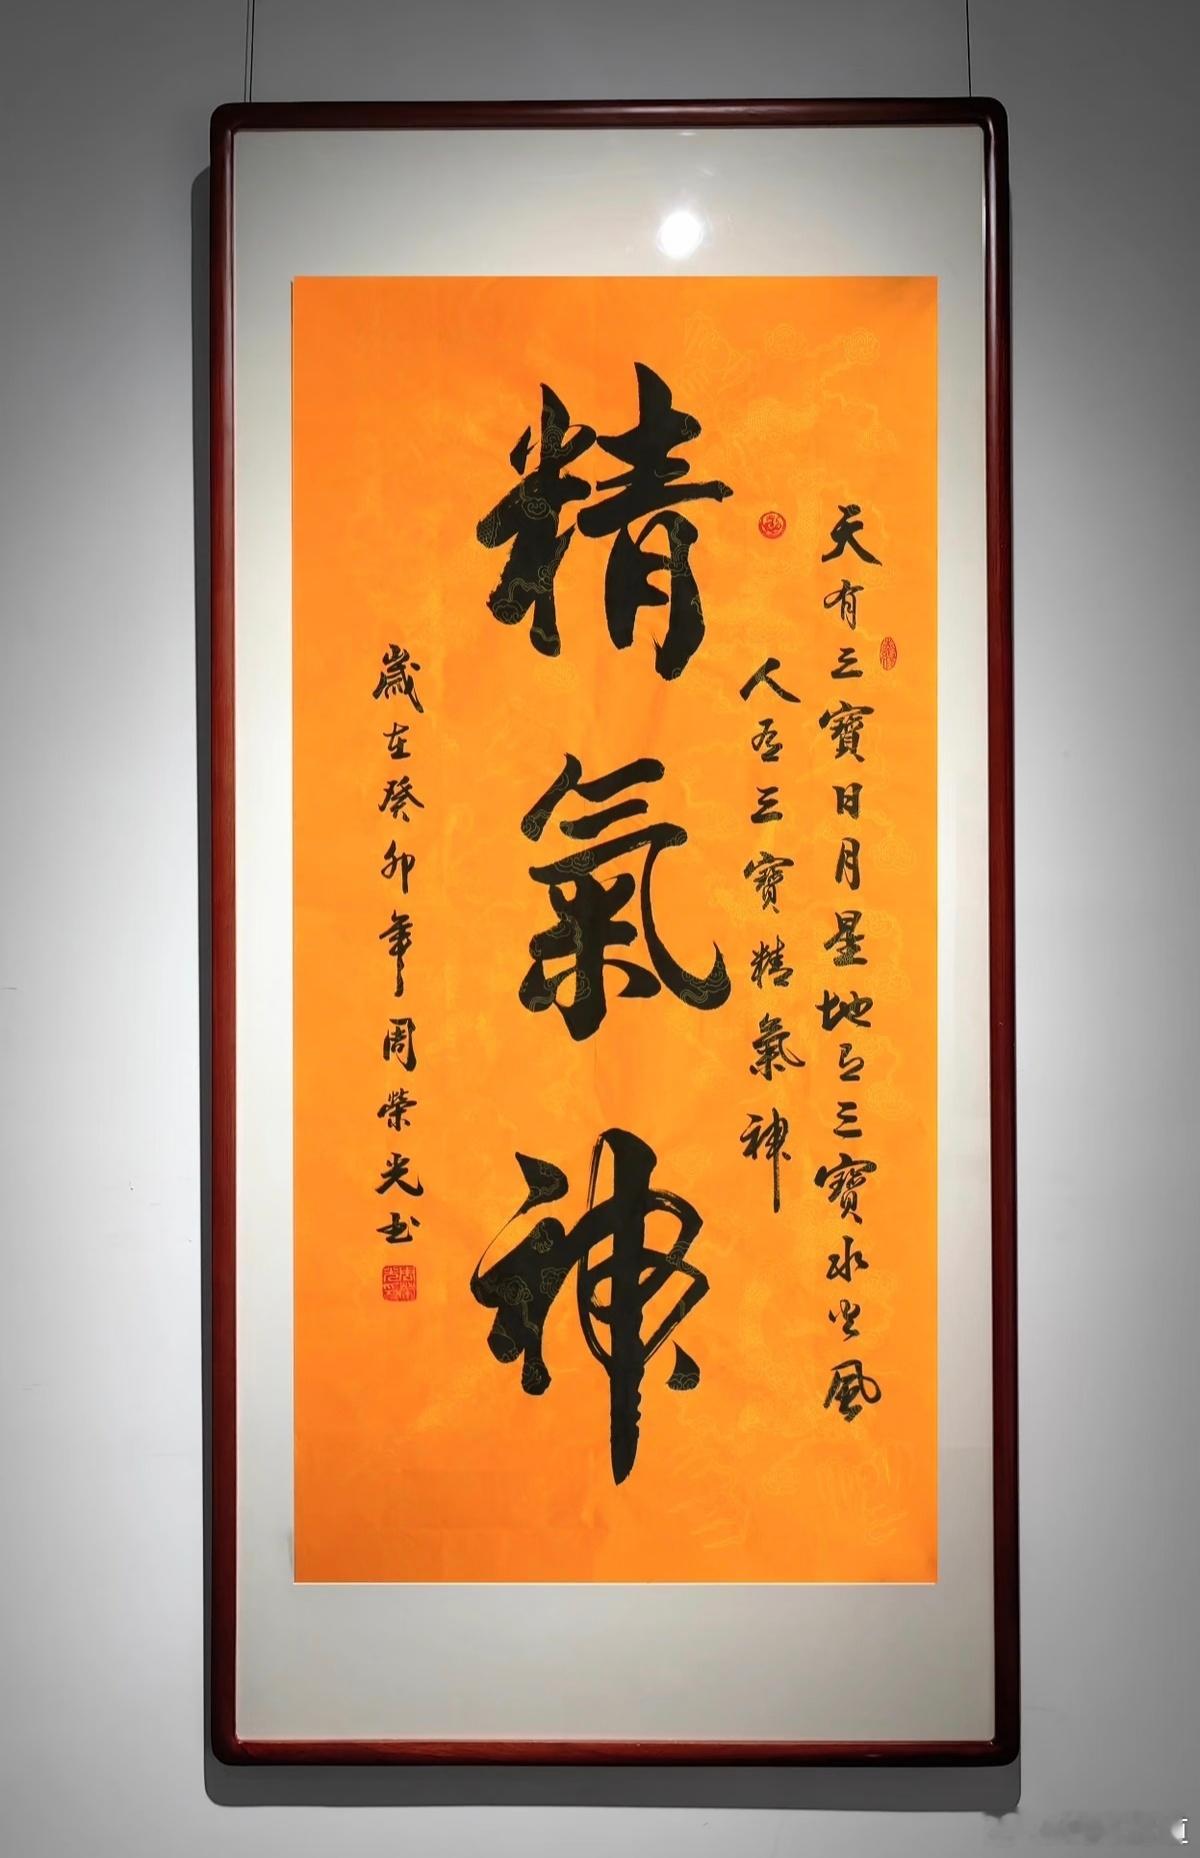 天有三寶日月星地有三寶水火風
人有三寶精氣神
精氣神
歲在癸卯年周榮光書